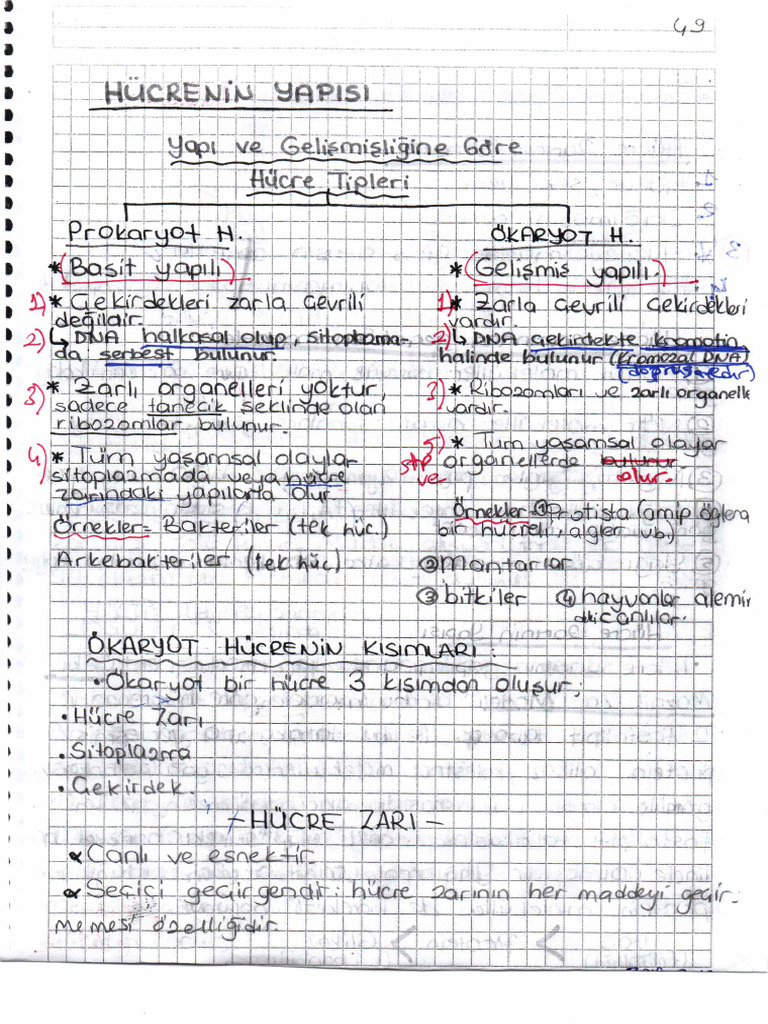 49
HÜCRENİN YAPISI
Yapı ve Gelişmişliğine Göre
Hücre Tipleri
Prokaryot H.
* (Basit yapılı)
1) * Çekirdekleri zarla çevrili
değildir.
2) ↳ DNA halkasal olup, sitoplazma-
da serbest bulunur.
3) * Zarlı organelleri yoktur,
sadece tanecik şeklinde olan
ribozomlar bulunur.
4) * Tüm yaşamsal olaylar
sitoplazmada veya hücre
zarındaki yapılarta olur
Örnekler= Bakteriler (tek hüc.)
Arkebakteriler (tek hüc)
ÖKARYOT H.
* (Gelişmiş yapılı.)
1) * Zarla çevrili çekirdekleri
vardır.
2) ↳ DNA çekirdekte kromotin
halinde bulunur (Kromozal DNA)
(doğrusaldır)
3) * Ribozomları ve zarlı organelle
vardır.
5) * Tüm yaşamsal olaylar
stp ve organellerde bulunur. olur.
Örnekler= ① Protista (amip öglena
bir hücreli, algler vb.)
② mantarlar
③ bitkiler ④ hayvanlar alemin
deki canlılar.
ÖKARYOT HÜCRENİN KISIMLARI:
• Ökaryot bir hücre 3 kısımdan oluşur;
• Hücre Zarı
• Sitoplazma
• Çekirdek.
- HÜCRE ZARI -
α Canlı ve esnektir.
α Seçici geçirgendir: hücre zarının her maddeyi geçir-
memesi özelliğidir.